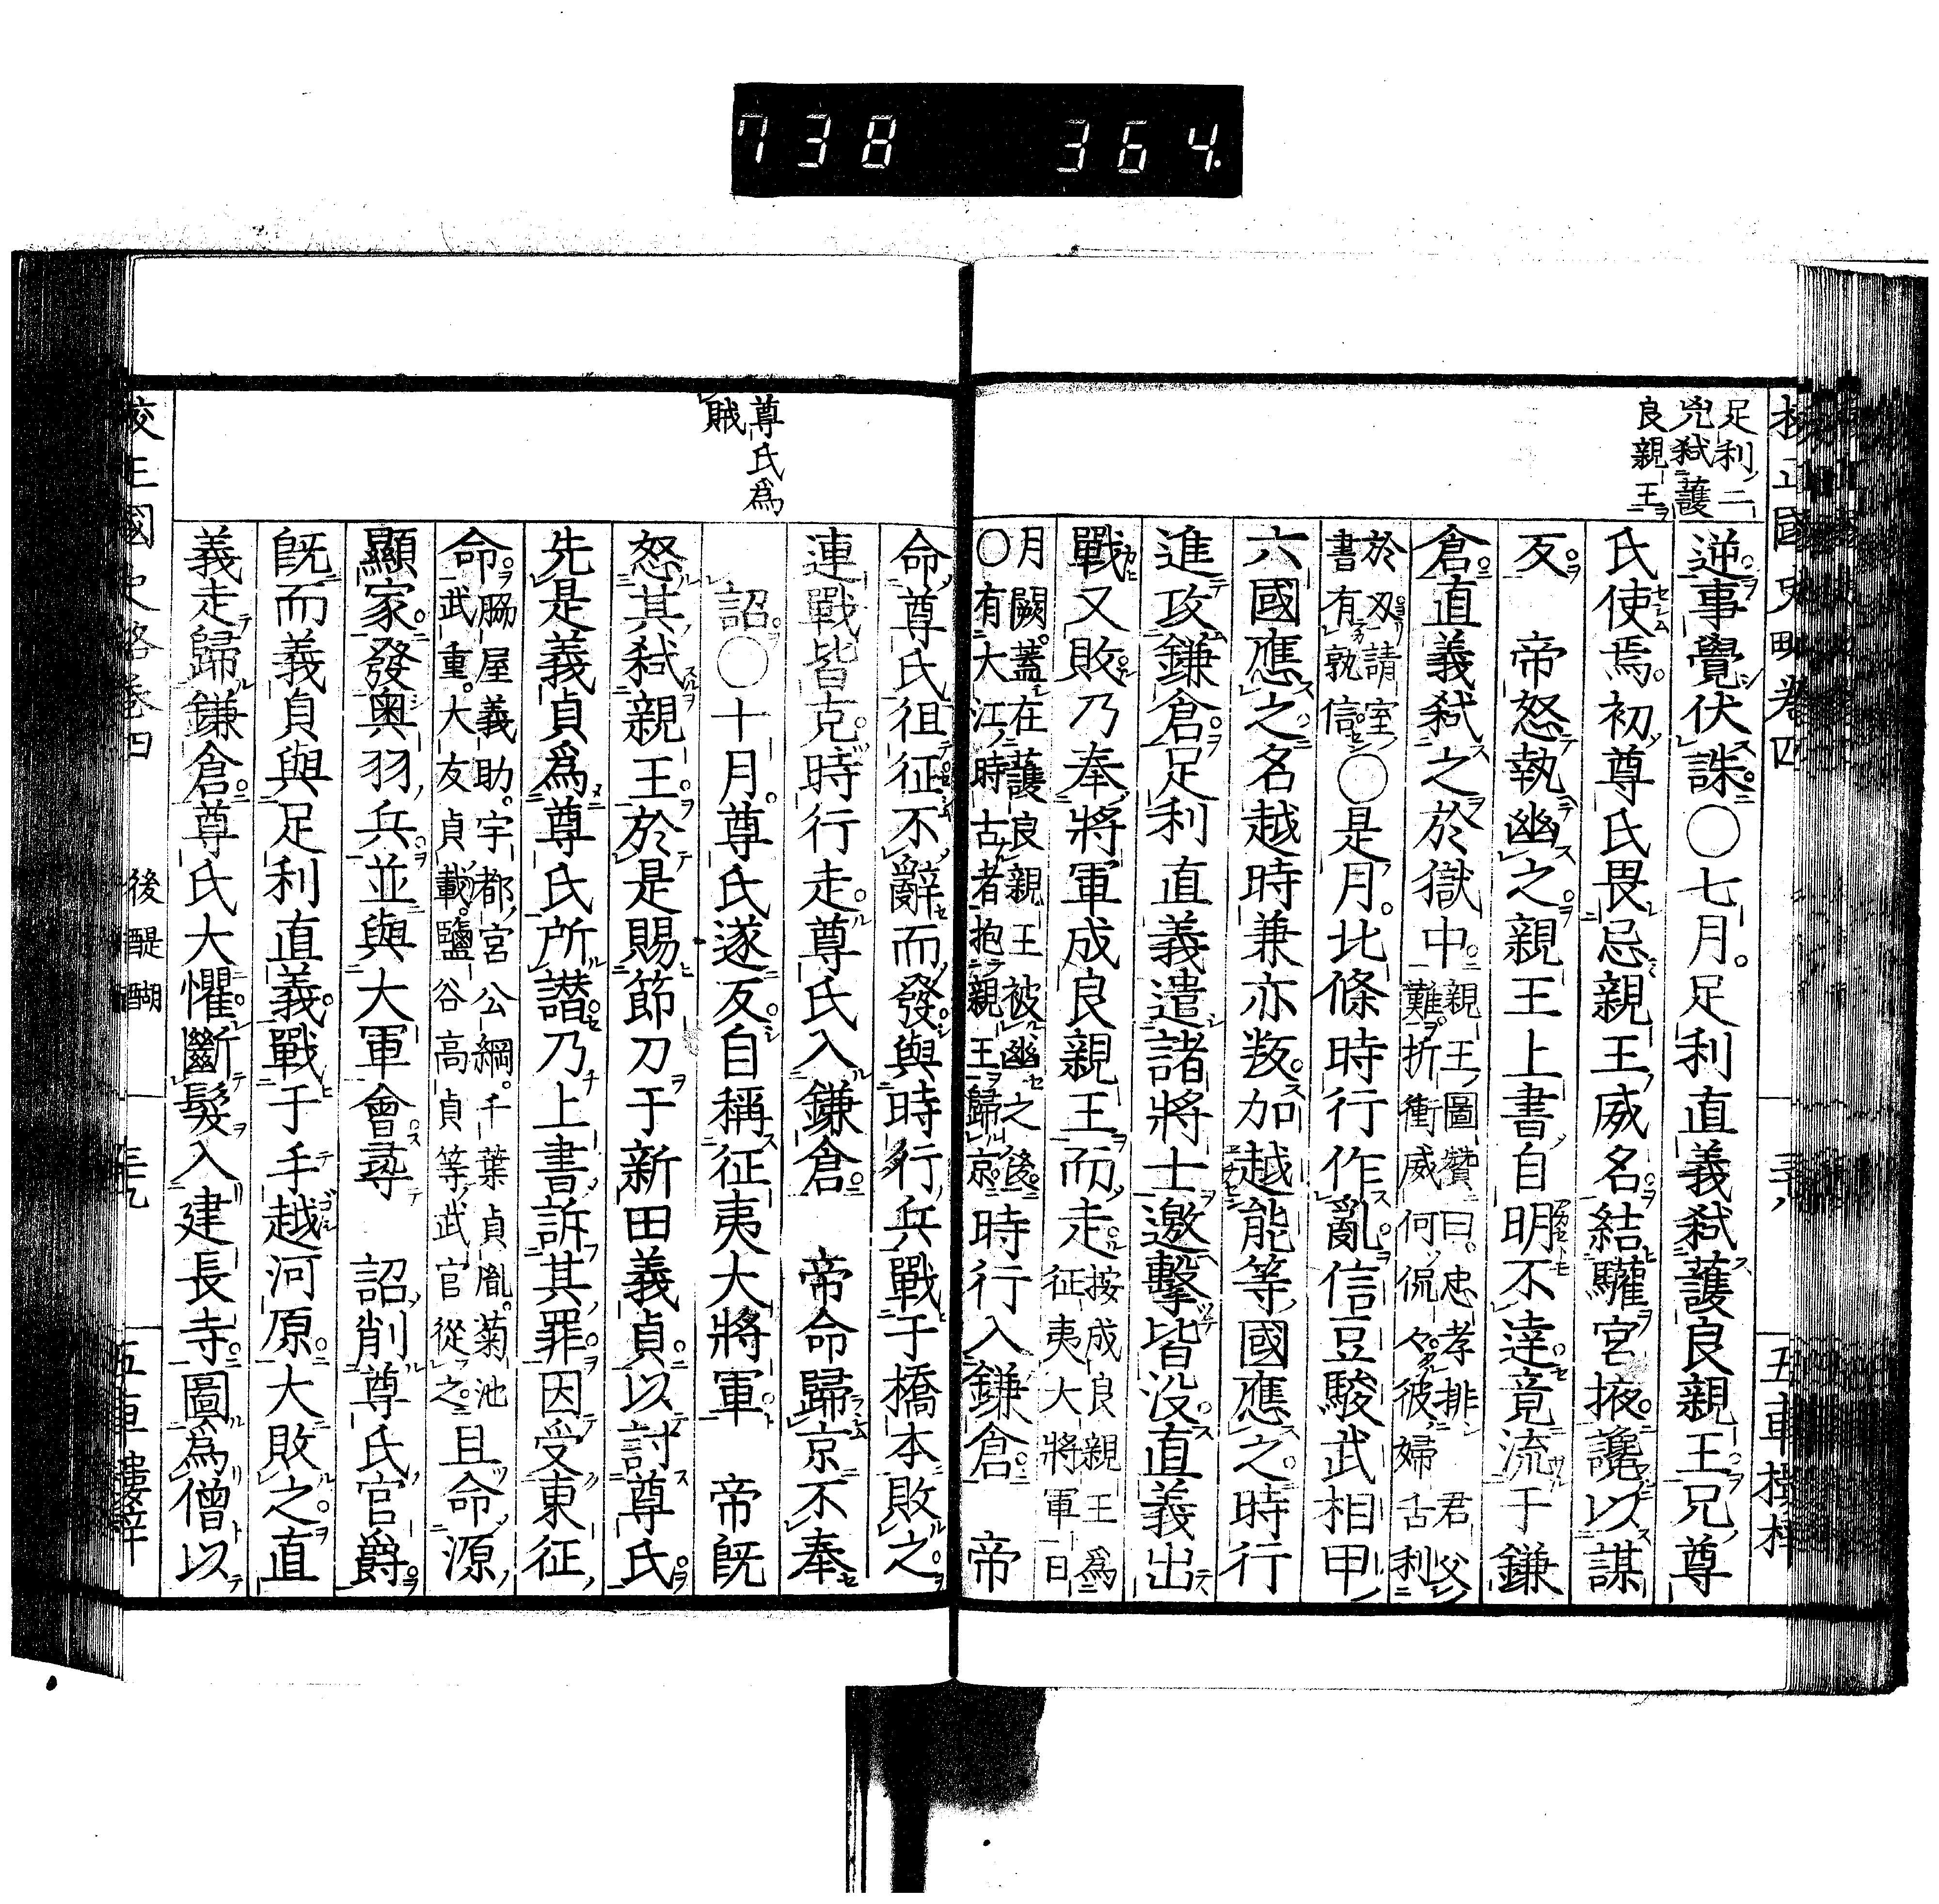 738 364.
足利二
兇弑護
良親王
逆事覺伏誅〇七月。足利直義弑護良親王兄尊
氏使焉。初尊氏畏忌親王威名結驩宮掖讒以謀
反 帝怒執幽之。親王上書自明不達竟流于鎌
倉直義弑之於獄中。親王圖贊曰。忠孝排君父
難折衝威何侃々彼婦舌利
於刄請室
書有孰信〇是月。北條時行作亂信豆駿武相甲
六國應之。名越時兼亦叛。加越能等國應之。時行
進攻鎌倉足利直義遣諸將士邀擊皆没。直義出
戰又敗乃奉將軍成良親王而走。按成良親王爲
征夷大將軍日
月闕。蓋在護良親王被幽之後。
〇有大江時古者抱親王歸京。時行入鎌倉。 帝
尊氏爲
賊
命尊氏徂征不辭而發與時行兵戰于橋本敗之。
連戰皆克。時行走。尊氏入鎌倉。 帝命歸京不奉
詔〇十月。尊氏遂反自稱征夷大將軍 帝既
怒其弑親王於是賜節刀于新田義貞以討尊氏。
先是義貞爲尊氏所譖乃上書訴其罪因受東征
命。脇屋義助。宇都宮公綱。千葉貞胤。菊池
武重。大友貞載。鹽谷高貞等武官從之。且命源
顯家發奥羽兵並與大軍會尋 詔削尊氏官爵。
既而義貞與足利直義戰于手越河原大敗之。直
義走歸鎌倉。尊氏大懼斷髮入建長寺圖爲僧以
後醍醐